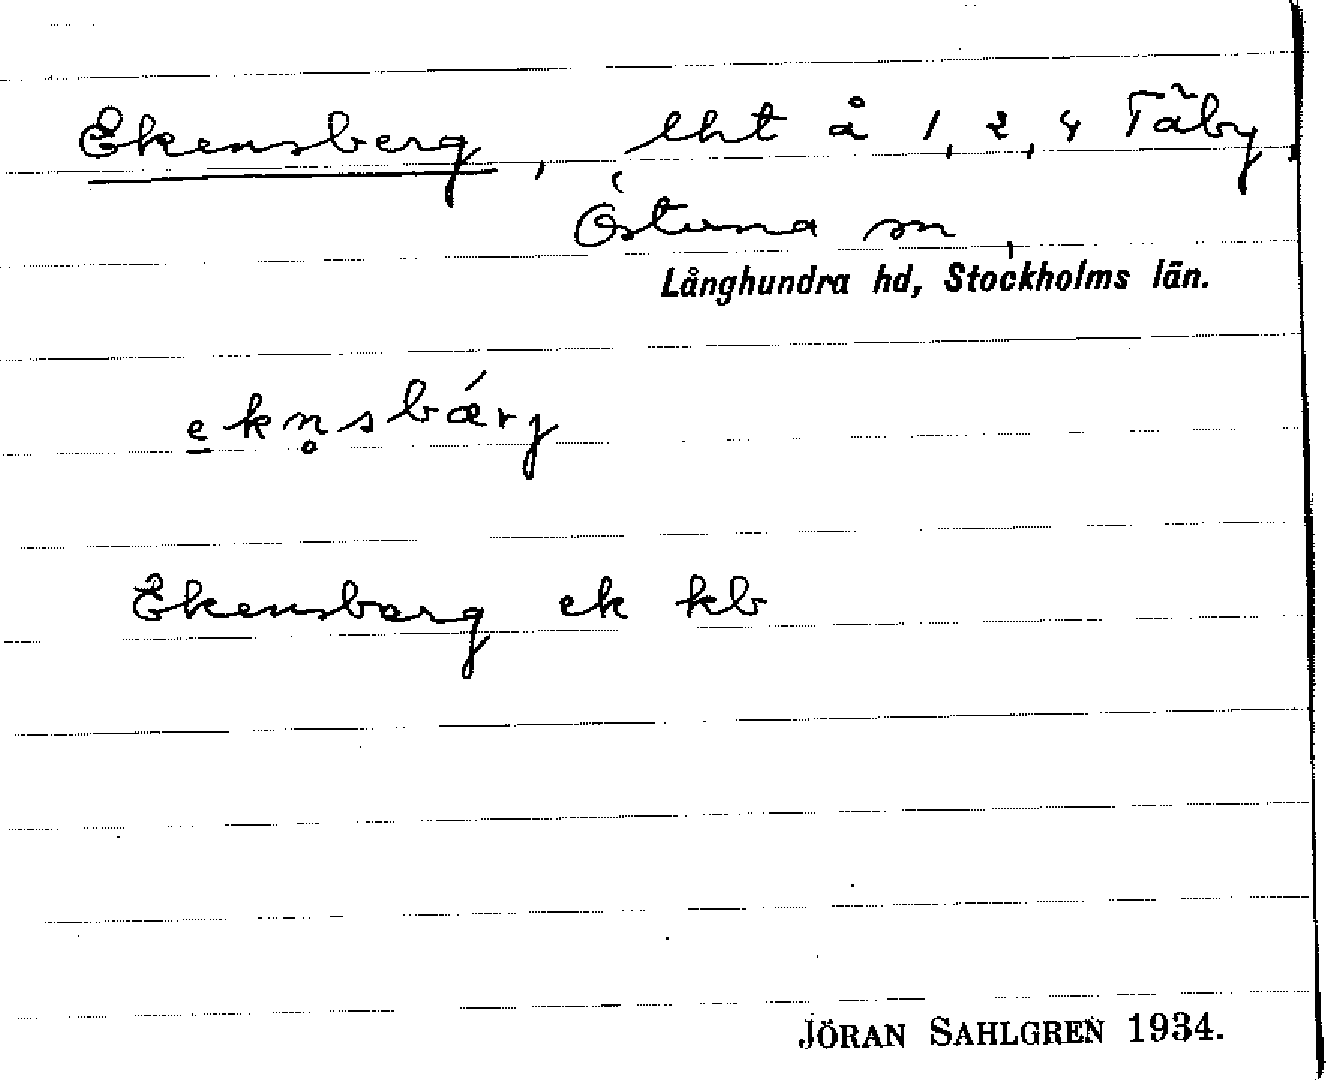 Ekensberg, lht å 1, 2, 4 Täby,
Östuna sn,
Långhundra hd, Stockholms län.
e̲kn̥sbǽrj
Ekensberg ek kb
JÖRAN SAHLGREN 1934.